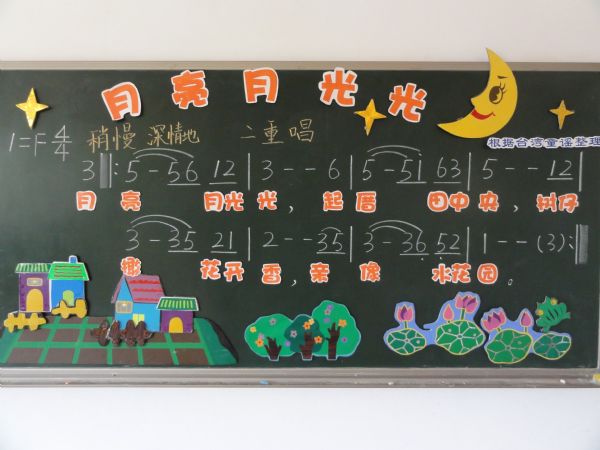 月亮月光光
1=F 4/4 稍慢 深情地 二重唱
根据台湾童谣整理
3 ‖: 5 - 56 12 | 3 - - 6 | 5 - 51 63 | 5 - - 12 |
月 亮 月光 光， 起 厝 田中 央， 树仔
3 - 35 21 | 2 - - 35 | 3 - 36 52 | 1 - - (3) :‖
花开 香， 亲 像 水花 园。